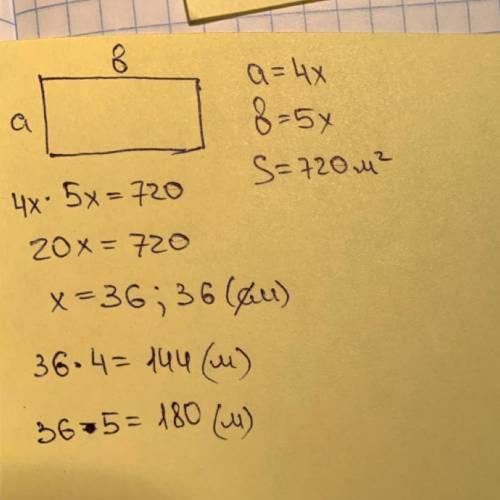 в
a
a=4x
в=5x
S=720м²
4x·5x=720
20x=720
x=36; 36 (м)
36·4=144(м)
36·5=180(м)